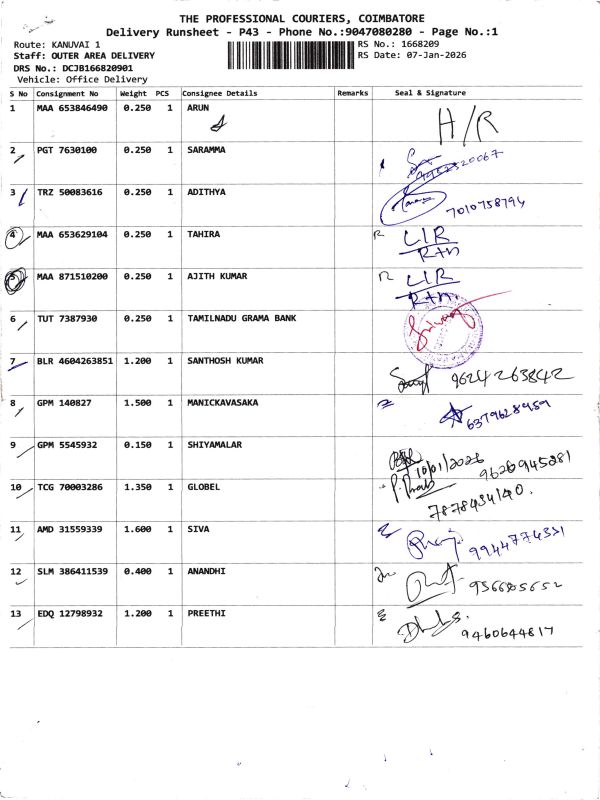 THE PROFESSIONAL COURIERS, COIMBATORE
Delivery Runsheet - P43 - Phone No.:9047080280 - Page No.:1
Route: KANUVAI 1
Staff: OUTER AREA DELIVERY
DRS No.: DCJB166820901
Vehicle: Office Delivery
RS No.: 1668209
RS Date: 07-Jan-2026
S No Consignment No Weight PCS Consignee Details Remarks Seal & Signature
1 MAA 653846490 0.250 1 ARUN H/R
2 PGT 7630100 0.250 1 SARAMMA
3 TRZ 50083616 0.250 1 ADITHYA 7010758794
4 MAA 653629104 0.250 1 TAHIRA R L/R
Rtn
5 MAA 871510200 0.250 1 AJITH KUMAR R L/R
Rtn
6 TUT 7387930 0.250 1 TAMILNADU GRAMA BANK
7 BLR 4604263851 1.200 1 SANTHOSH KUMAR 9624263842
8 GPM 140827 1.500 1 MANICKAVASAKA 6379628959
9 GPM 5545932 0.150 1 SHIYAMALAR 10/01/2026 9626945281
10 TCG 70003286 1.350 1 GLOBEL 7878434140.
11 AMD 31559339 1.600 1 SIVA 9944774331
12 SLM 386411539 0.400 1 ANANDHI
13 EDQ 12798932 1.200 1 PREETHI 9460644817